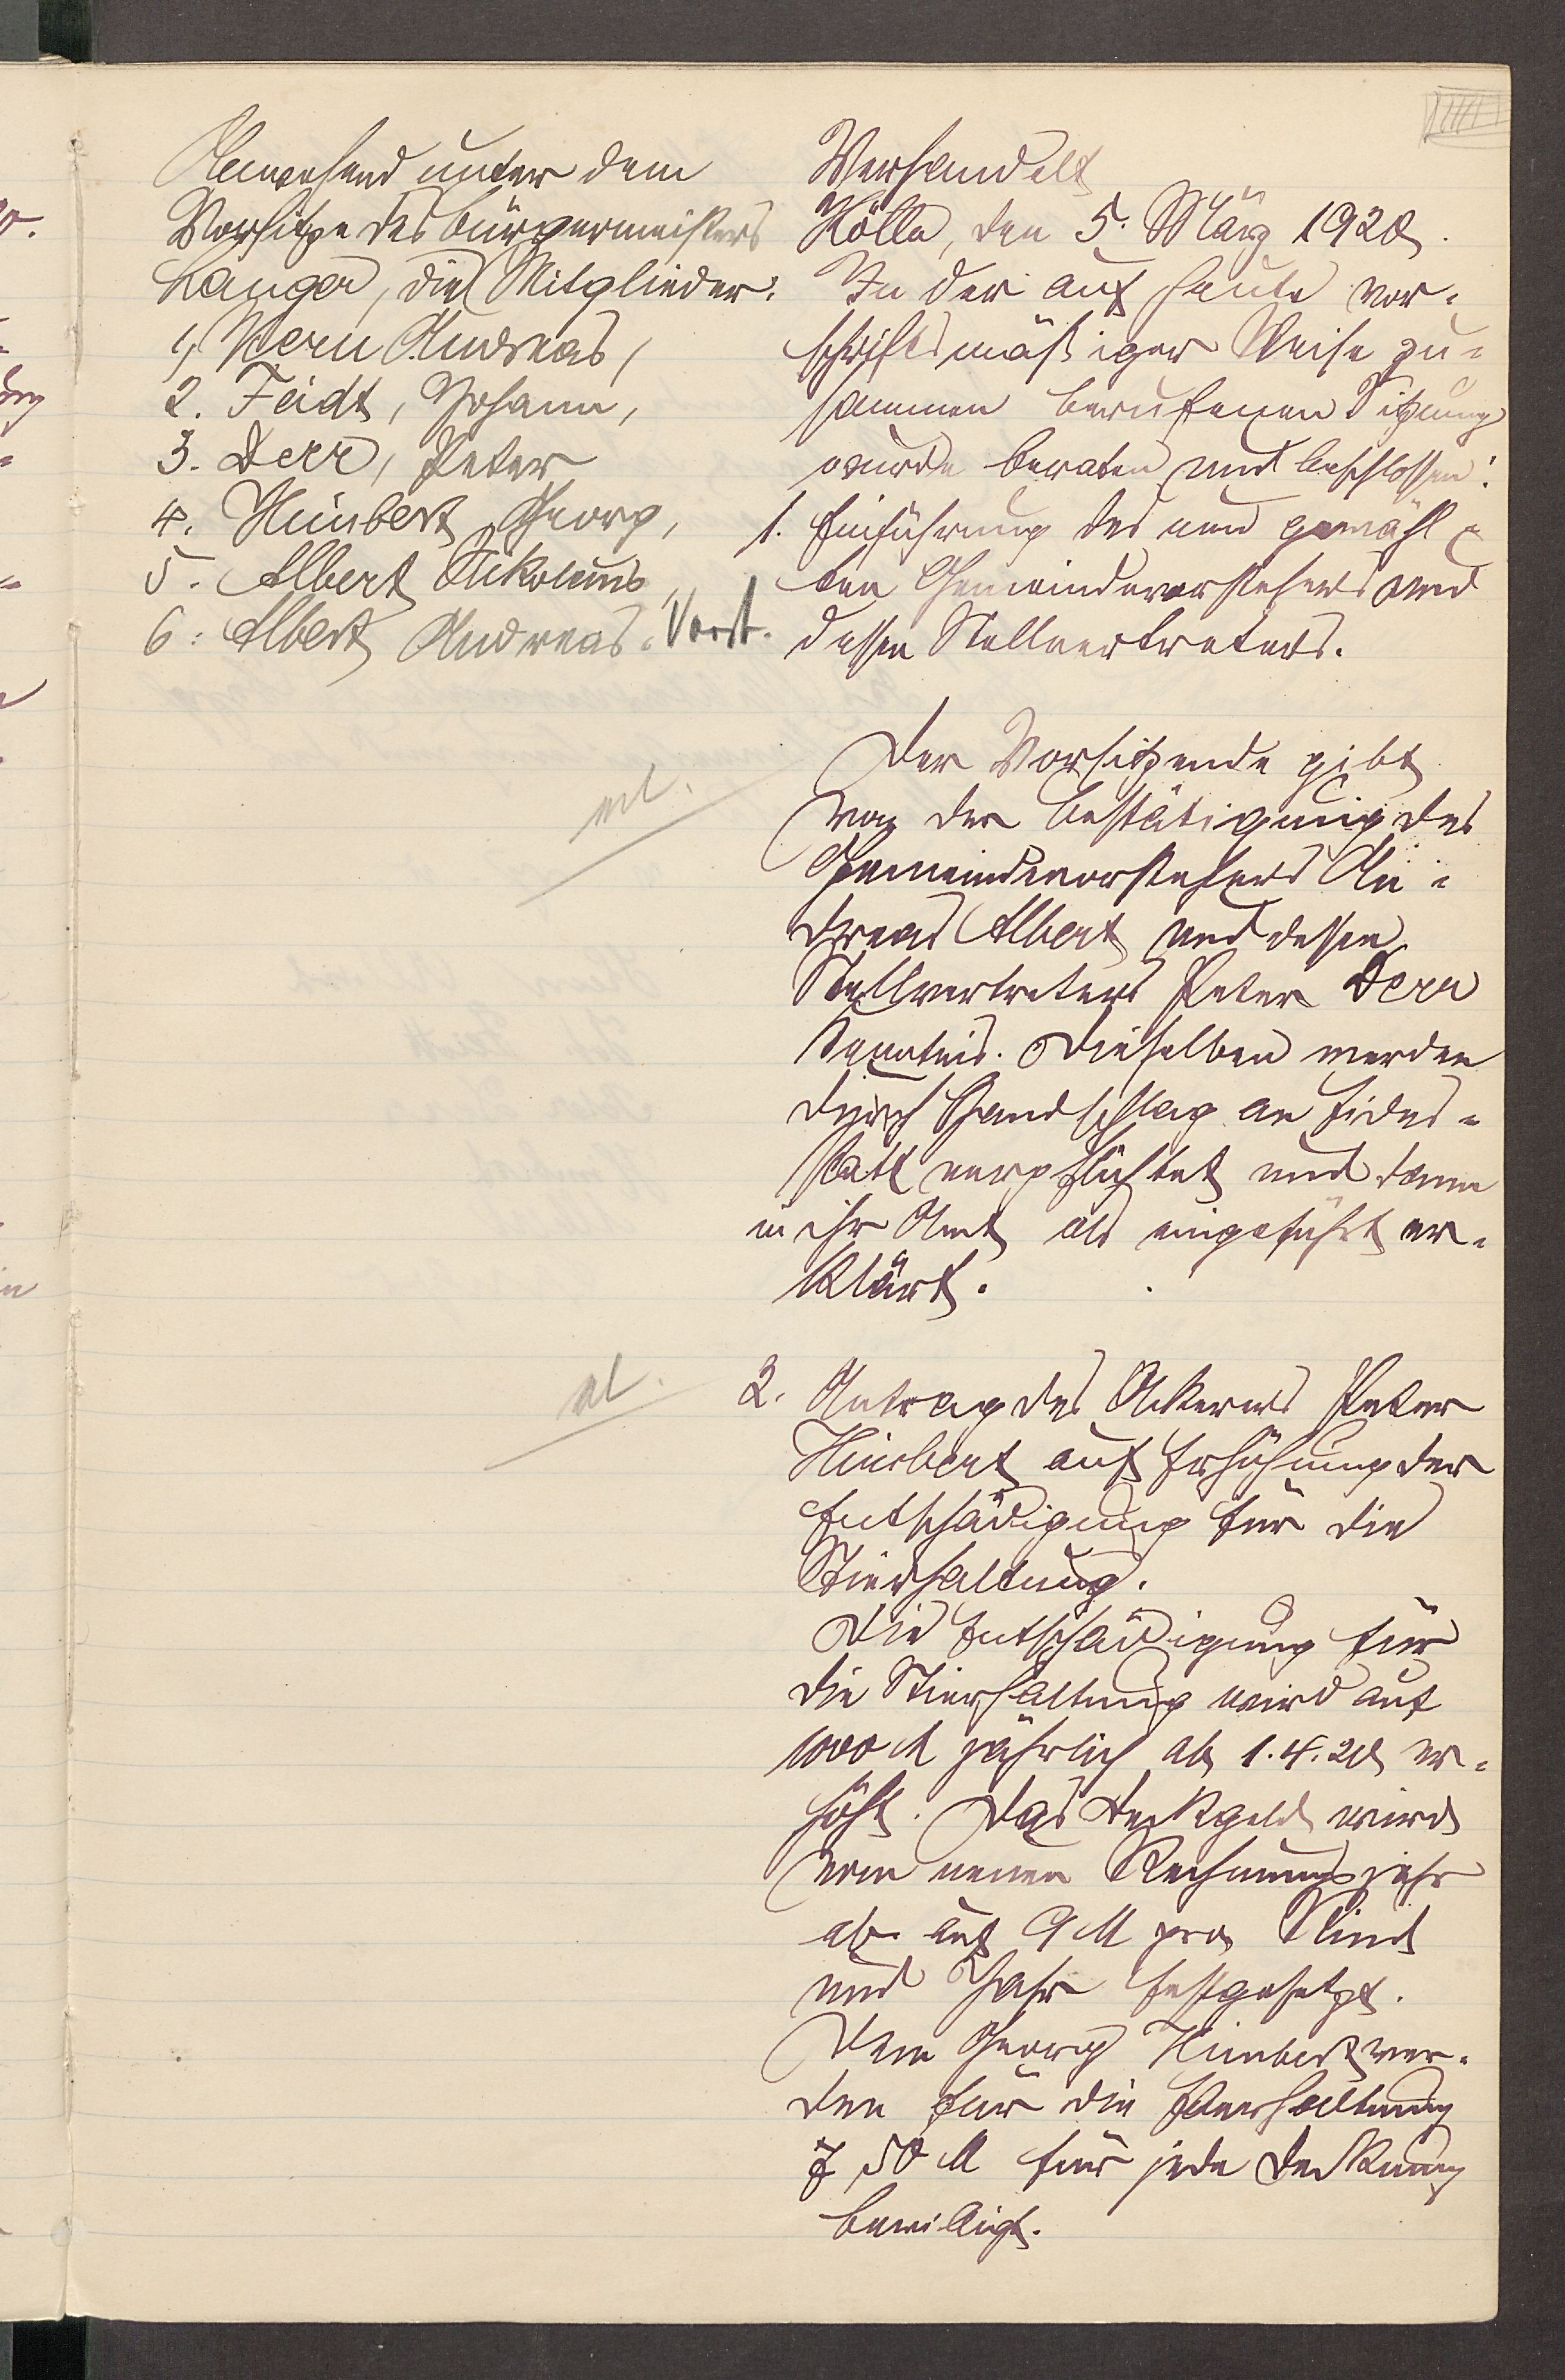 Anwesend unter dem
Vorsitze des Bürgermeisters
Langer, die Mitglieder:
1, Kern Andreas,
2. Feidt, Johann,
3. Derr, Peter
4. Himbert Georg,
5. Albert Nikolaus,
6. Albert Andreas. Vorst.
Verhandelt
Kölln, den 5. März 1920.
In der auf heute vor-
schriftsmäßiger Weise zu-
sammen berufenen Sitzung
wurde beraten und beschlossen:
1. Einführung des neu gewähl-
ten Gemeindevorstehers und
dessen Stellvertreters.
Der Vorsitzende gibt
von der Bestätigung des
Gemeindevorstehers An-
dreas Albert und dessen
Stellvertreters Peter Derr
Kenntnis. Dieselben werden
durch Handschlag an Eides-
statt verpflichtet und dann
in ihr Amt als eingeführt er-
klärt.
2. Antrag des Ackerers Peter
Himbert auf Erhöhung der
Entschädigung für die
Stierhaltung.
Die Entschädigung für
die Stierhaltung wird auf
1000 M jährlich ab 1.4.20 er-
höht. Das Deckgeld wird
vom neuen Rechnungsjahr
ab auf 9 M pro Rind
und Jahr festgesetzt.
Dem Georg Himbert wer-
den für die Eberhaltung
7,50 M für jede Deckung
bewilligt.